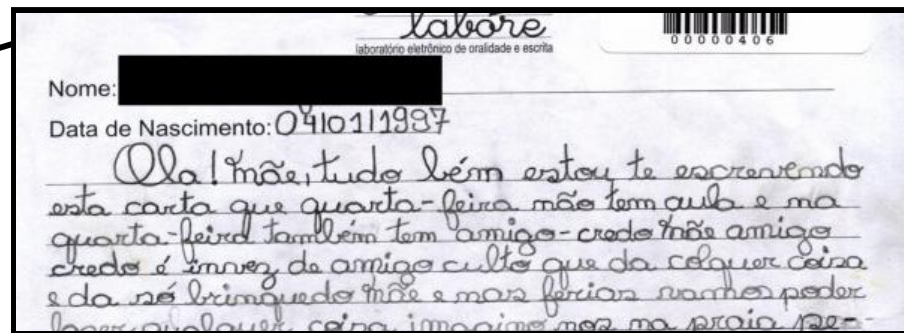 labore
laboratório eletrônico de oralidade e escrita
00000406
Nome:
Data de Nascimento: 04/01/1997
Ola! mãe, tudo bém estou te escrevendo
esta carta que quarta-feira não tem aula e na
quarta-feira também tem amigo-credo mãe amigo
credo é innvez de amigo culto que da colquer coisa
e da só brinquedo mãe e nas férias vamhos poder
fazer qualquer coisa imagino nos na praia pe-